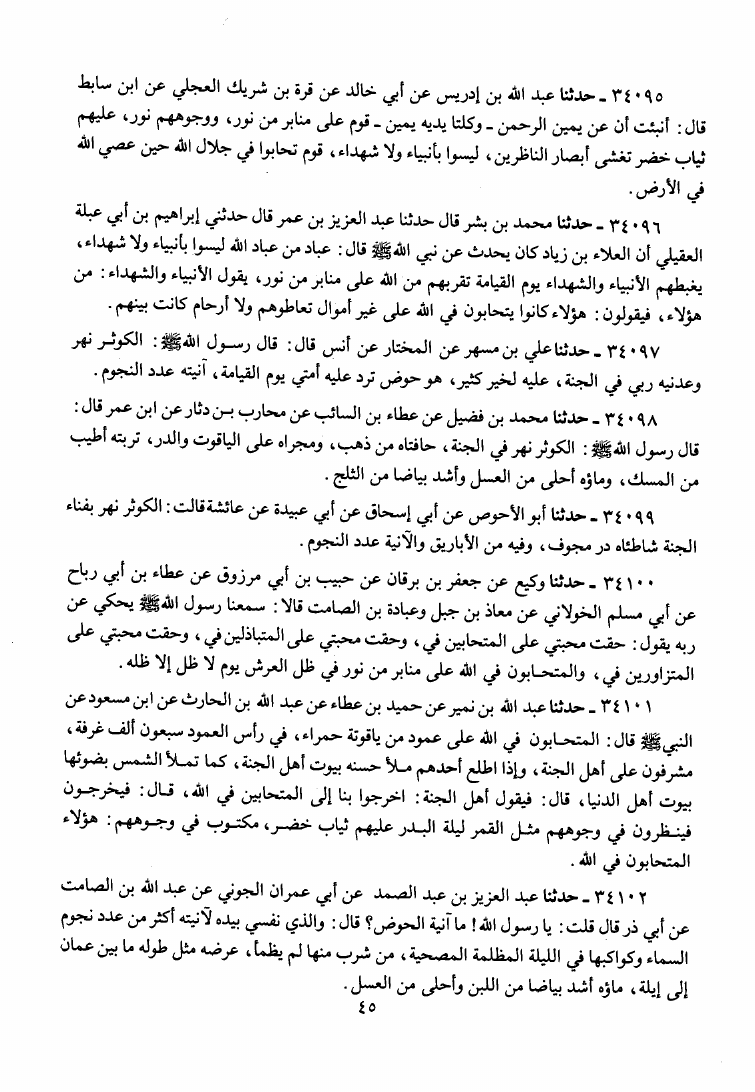 ٣٤٠٩٥ ـ حدثنا عبد الله بن إدريس عن أبي خالد عن قرة بن شريك العجلي عن ابن سابط
قال: أنبئت أن عن يمين الرحمن ـ وكلتا يديه يمين ـ قوم على منابر من نور، ووجوههم نور، عليهم
ثياب خضر تغشى أبصار الناظرين، ليسوا بأنبياء ولا شهداء، قوم تحابوا في جلال الله حين عصي الله
في الأرض.
٣٤٠٩٦ ـ حدثنا محمد بن بشر قال حدثنا عبد العزيز بن عمر قال حدثني إبراهيم بن أبي عبلة
العقيلي أن العلاء بن زياد كان يحدث عن نبي الله ﷺ قال: عباد من عباد الله ليسوا بأنبياء ولا شهداء،
يغبطهم الأنبياء والشهداء يوم القيامة تقربهم من الله على منابر من نور، يقول الأنبياء والشهداء: من
هؤلاء، فيقولون: هؤلاء كانوا يتحابون في الله على غير أموال تعاطوهم ولا أرحام كانت بينهم.
٣٤٠٩٧ ـ حدثنا علي بن مسهر عن المختار عن أنس قال: قال رسول الله ﷺ: الكوثر نهر
وعدنيه ربي في الجنة، عليه لخير كثير، هو حوض ترد عليه أمتي يوم القيامة، آنيته عدد النجوم.
٣٤٠٩٨ ـ حدثنا محمد بن فضيل عن عطاء بن السائب عن محارب بن دثار عن ابن عمر قال:
قال رسول الله ﷺ: الكوثر نهر في الجنة، حافتاه من ذهب، ومجراه على الياقوت والدر، تربته أطيب
من المسك، وماؤه أحلى من العسل وأشد بياضا من الثلج.
٣٤٠٩٩ ـ حدثنا أبو الأحوص عن أبي إسحاق عن أبي عبيدة عن عائشة قالت: الكوثر نهر بفناء
الجنة شاطئاه در مجوف، وفيه من الأباريق والآنية عدد النجوم.
٣٤١٠٠ ـ حدثنا وكيع عن جعفر بن برقان عن حبيب بن أبي مرزوق عن عطاء بن أبي رباح
عن أبي مسلم الخولاني عن معاذ بن جبل وعبادة بن الصامت قالا: سمعنا رسول الله ﷺ يحكي عن
ربه يقول: حقت محبتي على المتحابين في، وحقت محبتي على المتباذلين في، وحقت محبتي على
المتزاورين في، والمتحابون في الله على منابر من نور في ظل العرش يوم لا ظل إلا ظله.
٣٤١٠١ ـ حدثنا عبد الله بن نمير عن حميد بن عطاء عن عبد الله بن الحارث عن ابن مسعود عن
النبي ﷺ قال: المتحابون في الله على عمود من ياقوتة حمراء، في رأس العمود سبعون ألف غرفة،
مشرفون على أهل الجنة، وإذا اطلع أحدهم ملأ حسنه بيوت أهل الجنة، كما تملأ الشمس بضوئها
بيوت أهل الدنيا، قال: فيقول أهل الجنة: اخرجوا بنا إلى المتحابين في الله، قال: فيخرجون
فينظرون في وجوههم مثل القمر ليلة البدر عليهم ثياب خضر، مكتوب في وجوههم: هؤلاء
المتحابون في الله.
٣٤١٠٢ ـ حدثنا عبد العزيز بن عبد الصمد عن أبي عمران الجوني عن عبد الله بن الصامت
عن أبي ذر قال قلت: يا رسول الله! ما آنية الحوض؟ قال: والذي نفسي بيده لآنيته أكثر من عدد نجوم
السماء وكواكبها في الليلة المظلمة المصحية، من شرب منها لم يظمأ، عرضه مثل طوله ما بين عمان
إلى إيلة، ماؤه أشد بياضا من اللبن وأحلى من العسل.
٤٥